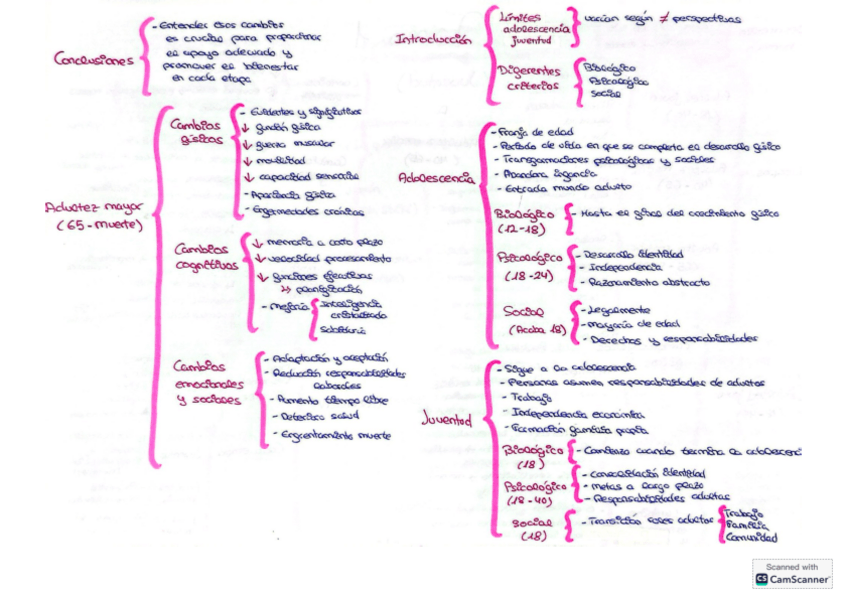 Conclusiones
- Entender esos cambios
es crucial para proporcionar
el apoyo adecuado y
promover el bienestar
en cada etapa
Adultez mayor
(65 - muerte)
Cambios
físicos
- Evidentes y significativos
↓ función física
↓ fuerza muscular
↓ movilidad
↓ capacidad sensorial
- Apariencia física
- Enfermedades crónicas
Cambios
cognitivos
↓ memoria a corto plazo
↓ velocidad procesamiento
↓ funciones ejecutivas
↳ planificación
- Mejoría
Inteligencia
cristalizada
Sabiduría
Cambios
emocionales
y sociales
- Adaptación y aceptación
- Reducción responsabilidades
laborales
- Aumento tiempo libre
- Deterioro salud
- Enfrentamiento muerte
Introducción
Límites
adolescencia
juventud
varían según ≠ perspectivas
Diferentes
criterios
Biológico
Psicológico
Social
Adolescencia
- Franja de edad
- Período de vida en que se completa el desarrollo físico
- Transformaciones psicológicas y sociales
- Abandona infancia
- Entrada mundo adulto
Biológico
(12-18)
- Hasta el final del crecimiento físico
Psicológico
(18-24)
- Desarrollo identidad
- Independencia
- Razonamiento abstracto
Social
(Acaba 18)
- Legalmente
- mayoría de edad
- Derechos y responsabilidades
Juventud
- Sigue a la adolescencia
- Personas asumen responsabilidades de adultos
- Trabajo
- Independencia económica
- Formación familia propia
Biológico
(18)
- Comienzo cuando termina la adolescenc
Psicológico
(18-40)
- Consolidación identidad
- metas a largo plazo
- Responsabilidades adultas
Social
(18)
- Transición roles adultos
Trabajo
Familia
Comunidad
Scanned with
CS CamScanner